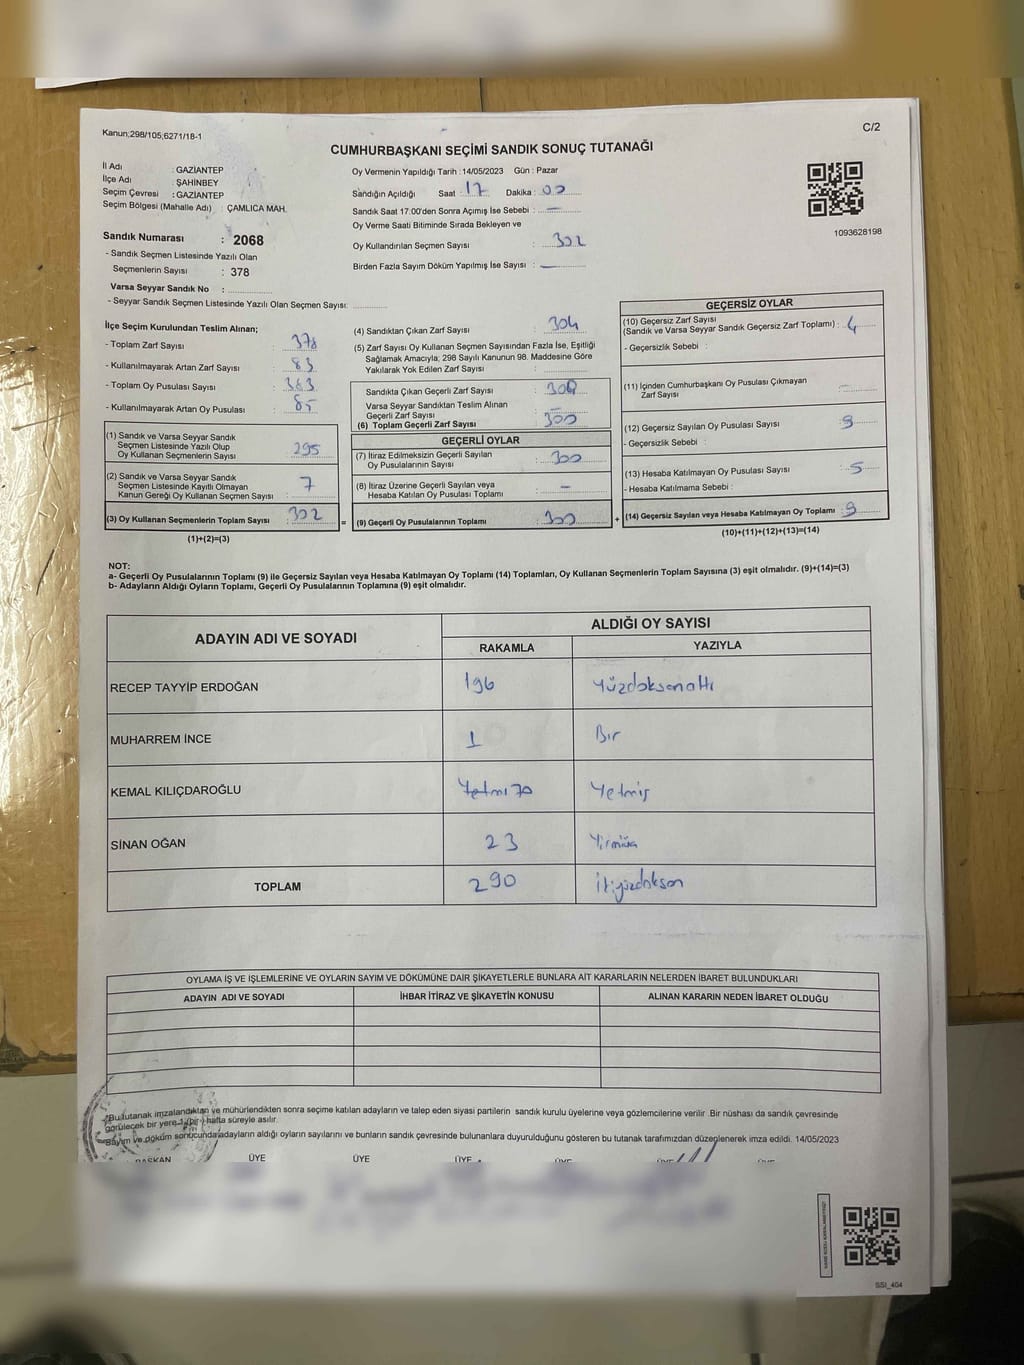 Kanun;298/105,6271/18-1
C/2
CUMHURBAŞKANI SEÇİMİ SANDIK SONUÇ TUTANAĞI
İl Adı : GAZİANTEP
İlçe Adı : ŞAHİNBEY
Seçim Çevresi : GAZİANTEP
Seçim Bölgesi (Mahalle Adı) : ÇAMLICA MAH.
Sandık Numarası : 2068
- Sandık Seçmen Listesinde Yazılı Olan
Seçmenlerin Sayısı : 378
Varsa Seyyar Sandık No :
- Seyyar Sandık Seçmen Listesinde Yazılı Olan Seçmen Sayısı:
Oy Vermenin Yapıldığı Tarih : 14/05/2023 Gün : Pazar
Sandığın Açıldığı Saat : 17 Dakika : 00
Sandık Saat 17:00'den Sonra Açımış İse Sebebi : —
Oy Verme Saati Bitiminde Sırada Bekleyen ve
Oy Kullandırılan Seçmen Sayısı : 302
Birden Fazla Sayım Döküm Yapılmış İse Sayısı : —
1093628198
İlçe Seçim Kurulundan Teslim Alınan;
- Toplam Zarf Sayısı : 378
- Kullanılmayarak Artan Zarf Sayısı : 83
- Toplam Oy Pusulası Sayısı : 383
- Kullanılmayarak Artan Oy Pusulası : 85
(1) Sandık ve Varsa Seyyar Sandık
Seçmen Listesinde Yazılı Olup
Oy Kullanan Seçmenlerin Sayısı : 295
(2) Sandık ve Varsa Seyyar Sandık
Seçmen Listesinde Kayıtlı Olmayan
Kanun Gereği Oy Kullanan Seçmen Sayısı : 7
(3) Oy Kullanan Seçmenlerin Toplam Sayısı : 302 =
(1)+(2)=(3)
(4) Sandıktan Çıkan Zarf Sayısı : 304
(5) Zarf Sayısı Oy Kullanan Seçmen Sayısından Fazla İse, Eşitliği
Sağlamak Amacıyla; 298 Sayılı Kanunun 98. Maddesine Göre
Yakılarak Yok Edilen Zarf Sayısı :
Sandıkta Çıkan Geçerli Zarf Sayısı :
Varsa Seyyar Sandıktan Teslim Alınan
Geçerli Zarf Sayısı : —
(6) Toplam Geçerli Zarf Sayısı : 300
GEÇERLİ OYLAR
(7) İtiraz Edilmeksizin Geçerli Sayılan
Oy Pusulalarının Sayısı : 300
(8) İtiraz Üzerine Geçerli Sayılan veya
Hesaba Katılan Oy Pusulası Toplamı : —
(9) Geçerli Oy Pusulalarının Toplamı : 300 +
GEÇERSİZ OYLAR
(10) Geçersiz Zarf Sayısı
(Sandık ve Varsa Seyyar Sandık Geçersiz Zarf Toplamı) : 4
- Geçersizlik Sebebi :
(11) İçinden Cumhurbaşkanı Oy Pusulası Çıkmayan
Zarf Sayısı : —
(12) Geçersiz Sayılan Oy Pusulası Sayısı : 9
- Geçersizlik Sebebi :
(13) Hesaba Katılmayan Oy Pusulası Sayısı : 5
- Hesaba Katılmama Sebebi :
(14) Geçersiz Sayılan veya Hesaba Katılmayan Oy Toplamı : 9
(10)+(11)+(12)+(13)=(14)
NOT:
a- Geçerli Oy Pusulalarının Toplamı (9) ile Geçersiz Sayılan veya Hesaba Katılmayan Oy Toplamı (14) Toplamları, Oy Kullanan Seçmenlerin Toplam Sayısına (3) eşit olmalıdır. (9)+(14)=(3)
b- Adayların Aldığı Oyların Toplamı, Geçerli Oy Pusulalarının Toplamına (9) eşit olmalıdır.
ADAYIN ADI VE SOYADI
ALDIĞI OY SAYISI
RAKAMLA YAZIYLA
RECEP TAYYİP ERDOĞAN 196 Yüzdoksanaltı
MUHARREM İNCE 1 Bir
KEMAL KILIÇDAROĞLU Yetmı 70 Yetmiş
SİNAN OĞAN 23
TOPLAM 290 ikiyüzdoksan
OYLAMA İŞ VE İŞLEMLERİNE VE OYLARIN SAYIM VE DÖKÜMÜNE DAİR ŞİKAYETLERLE BUNLARA AİT KARARLARIN NELERDEN İBARET BULUNDUKLARI
ADAYIN ADI VE SOYADI İHBAR İTİRAZ VE ŞİKAYETİN KONUSU ALINAN KARARIN NEDEN İBARET OLDUĞU
*Bu tutanak imzalandıktan ve mühürlendikten sonra seçime katılan adayların ve talep eden siyasi partilerin sandık kurulu üyelerine veya gözlemcilerine verilir. Bir nüshası da sandık çevresinde
görülecek bir yere 1 (bir) hafta süreyle asılır.
Sayım ve döküm sonucunda adayların aldığı oyların sayılarını ve bunların sandık çevresinde bulunanlara duyurulduğunu gösteren bu tutanak tarafımızdan düzenlenerek imza edildi. 14/05/2023
BAŞKAN ÜYE ÜYE ÜYE ÜYE ÜYE ÜYE
SSI_404